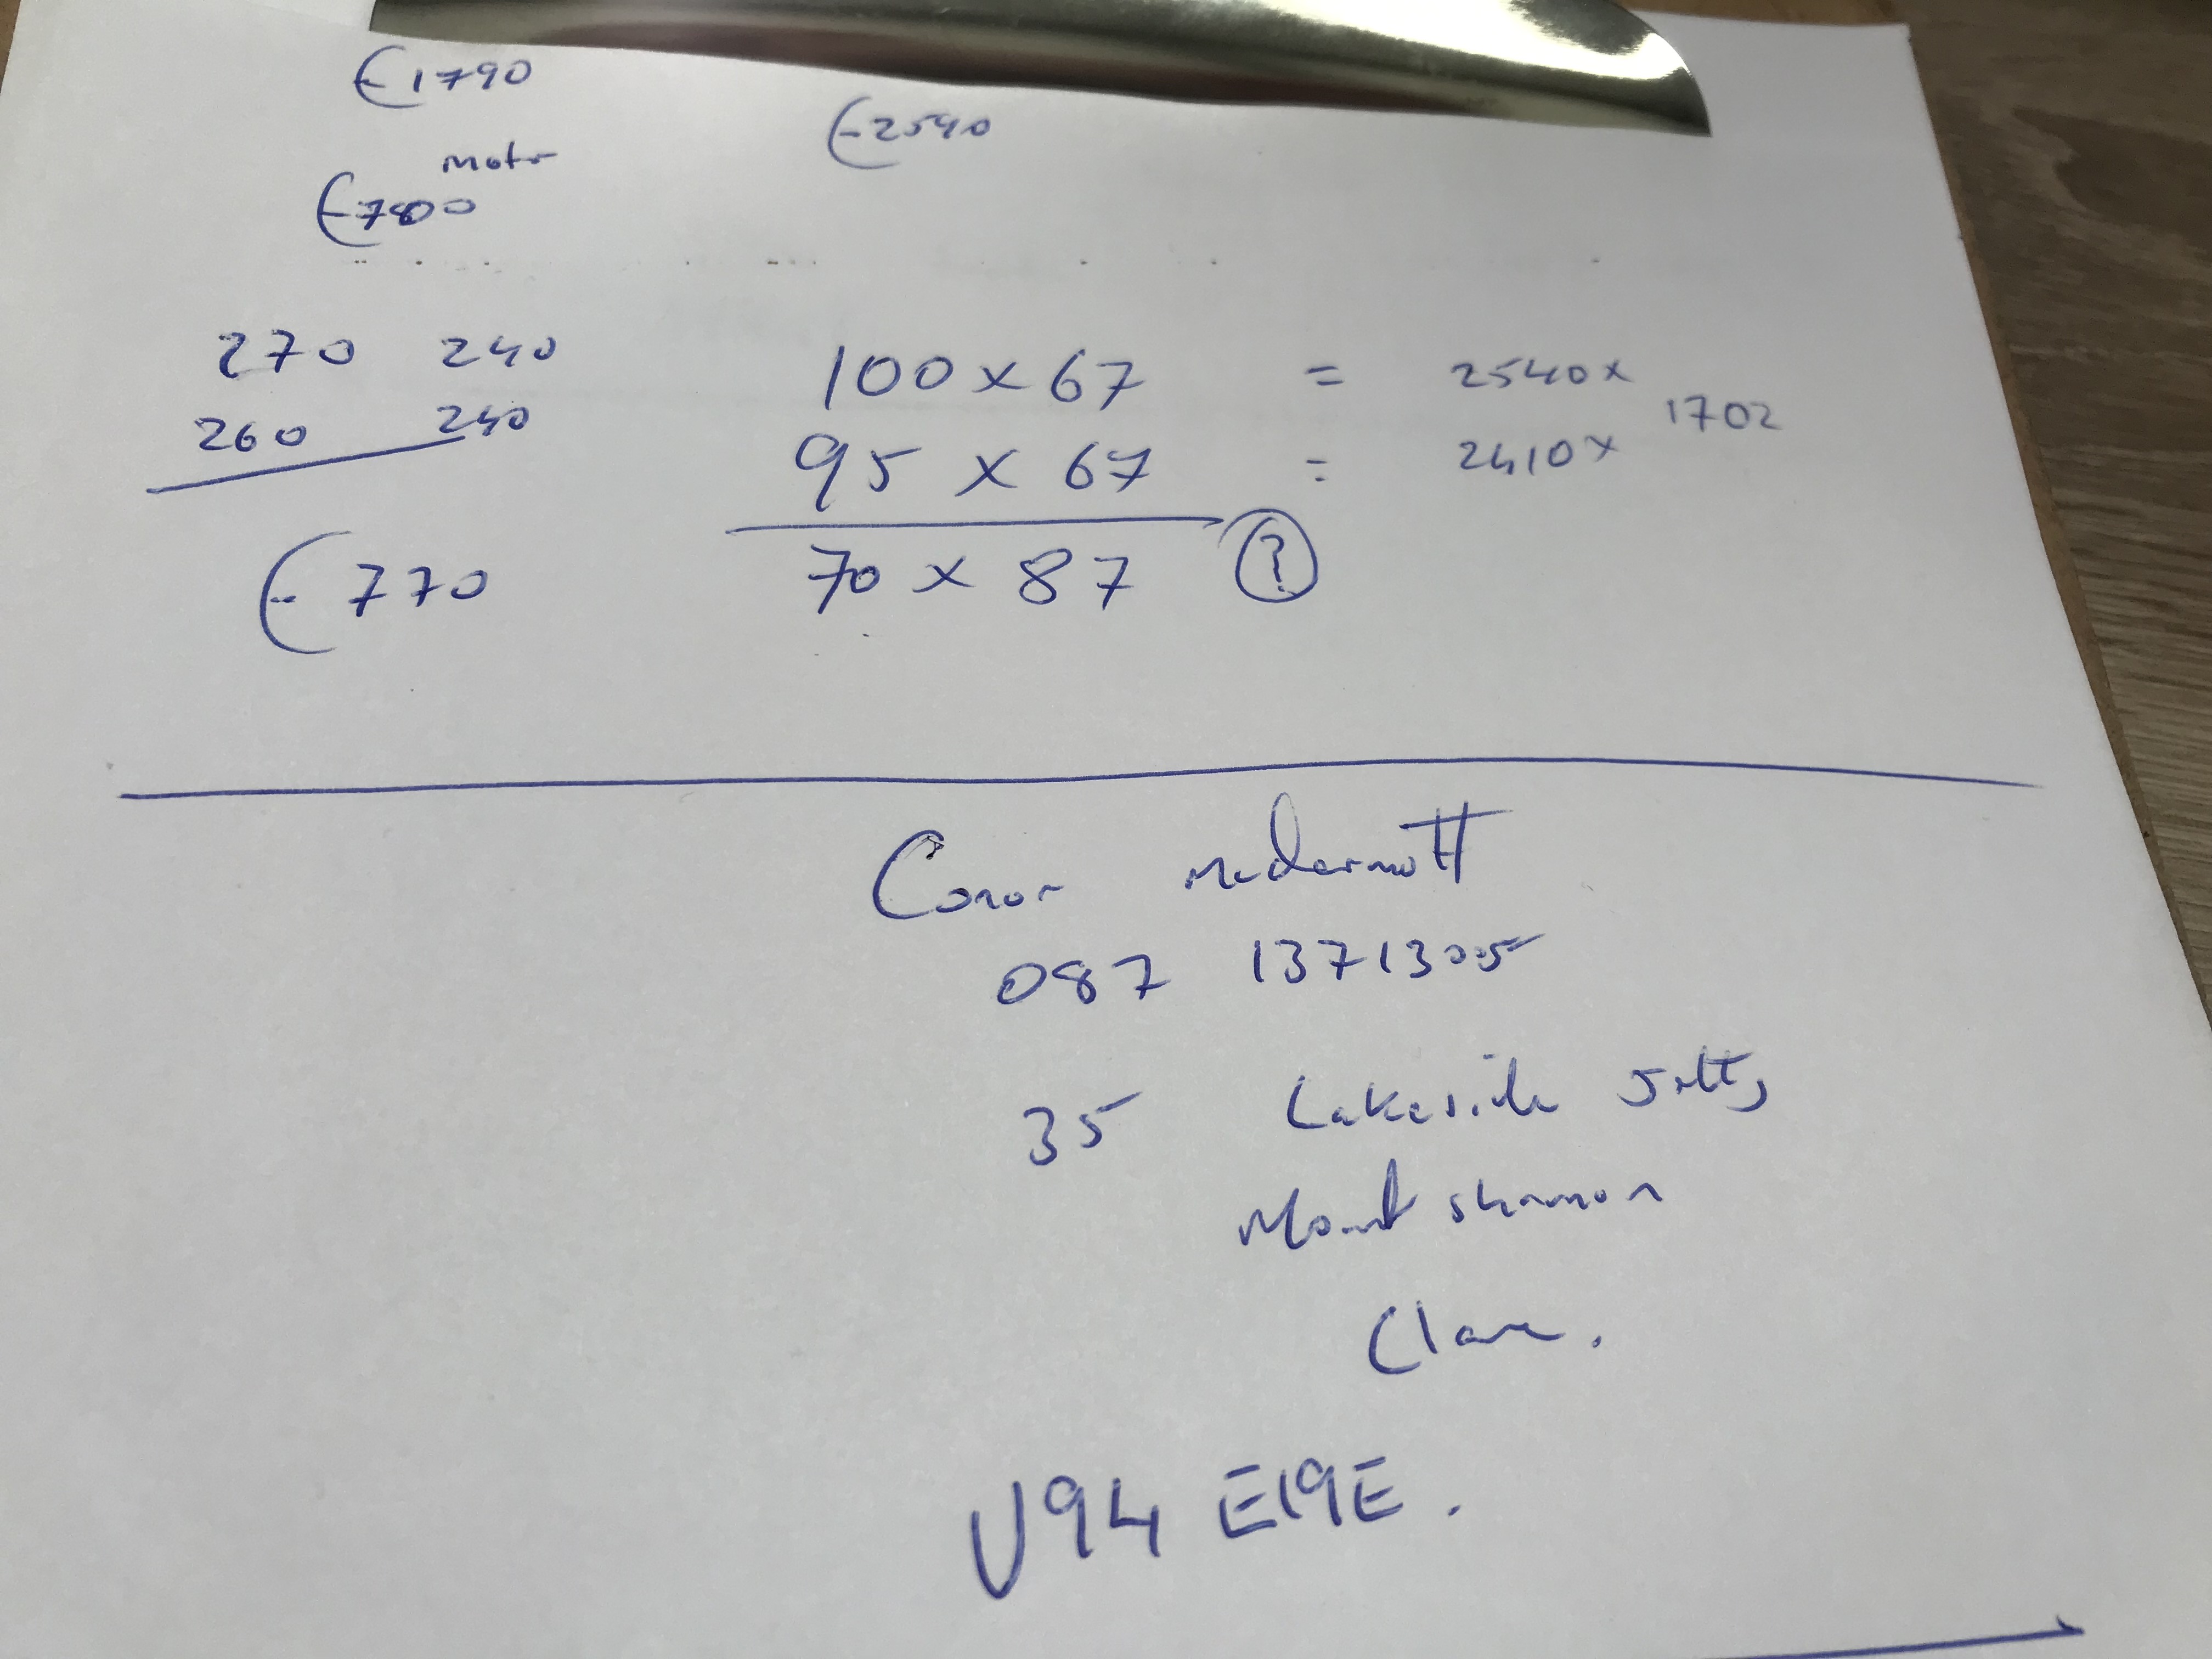 €1790
€2540
motor
€780
270 240 100 x 67 = 2540 x
1702
260 240 95 x 67 = 2410 x
€770 70 x 87 ?
Conor mcdermott
087 1371305
35 Lakeside
Mount shannon
Clare.
V94 E19E.